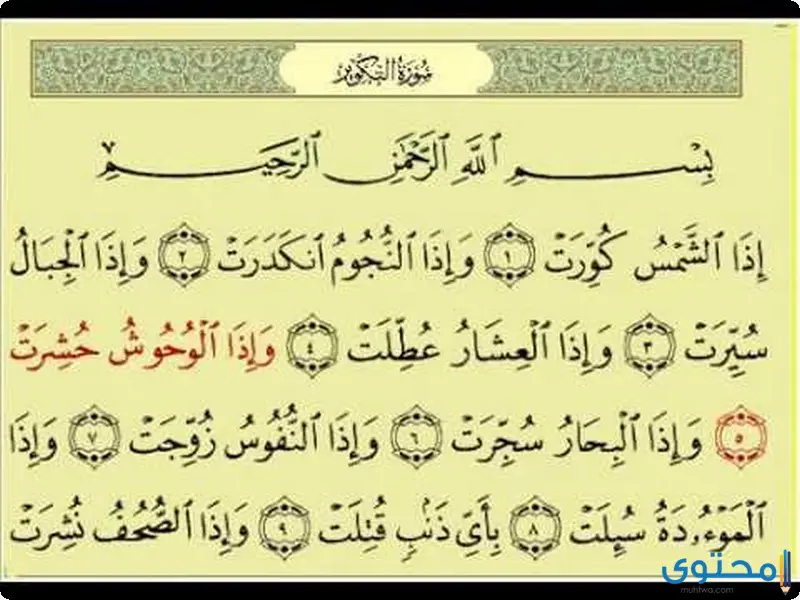 سُورَةُ التَّكْوِيرِ
بِسْمِ ٱللَّهِ ٱلرَّحْمَٰنِ ٱلرَّحِيمِ
إِذَا ٱلشَّمْسُ كُوِّرَتْ ١ وَإِذَا ٱلنُّجُومُ ٱنكَدَرَتْ ٢ وَإِذَا ٱلْجِبَالُ
سُيِّرَتْ ٣ وَإِذَا ٱلْعِشَارُ عُطِّلَتْ ٤ وَإِذَا ٱلْوُحُوشُ حُشِرَتْ
٥ وَإِذَا ٱلْبِحَارُ سُجِّرَتْ ٦ وَإِذَا ٱلنُّفُوسُ زُوِّجَتْ ٧ وَإِذَا
ٱلْمَوْءُۥدَةُ سُئِلَتْ ٨ بِأَيِّ ذَنۢبٍ قُتِلَتْ ٩ وَإِذَا ٱلصُّحُفُ نُشِرَتْ
محتوى
muhtwa.com